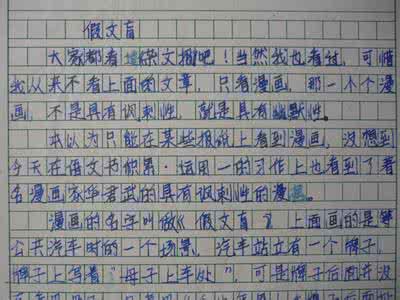 假文盲
大家都看过杂文报吧！当然我也看过，可惜
我从来不看上面的文章，只看漫画，那一个个漫
画，不是具有讽刺性，就是具有幽默性。
本以为只能在某些报纸上看到漫画，没想到
今天在语文书积累·运用一的习作上也看到了著
名漫画家华君武的具有讽刺性的漫画。
漫画的名字叫做《假文盲》，上面画的是等
公共汽车时的一个场景，汽车站立有一个牌子，
牌子上写着"母子上车处"，可是牌子后面并没